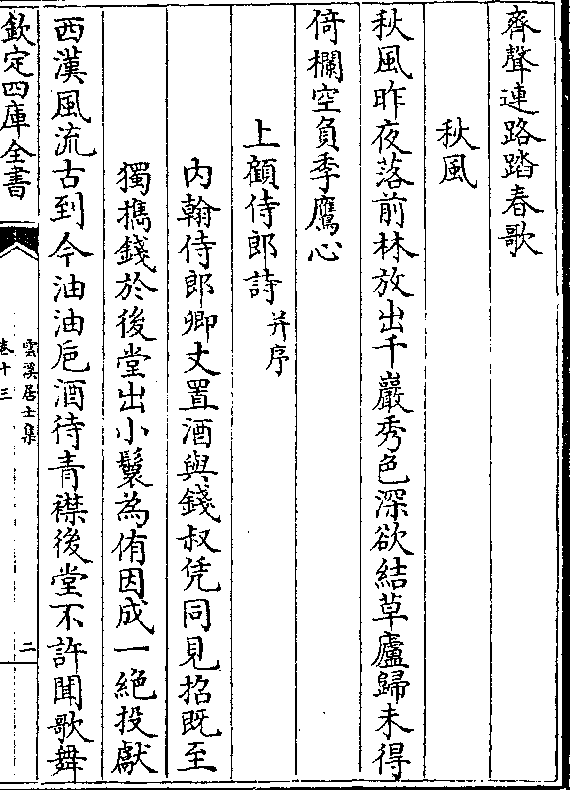 齊聲連路踏春歌
秋風
秋風昨夜落前林放出千巖秀色深欲結草廬歸未得
倚欄空負季鷹心
上顧侍郎詩并序
内翰侍郎卿丈置酒與錢叔凭同見招既至
獨攜錢於後堂出小鬟為侑因成一絶投獻
西漢風流古到今油油巵酒待青襟後堂不許聞歌舞
欽定四庫全書
雲溪居士集
卷十三
二